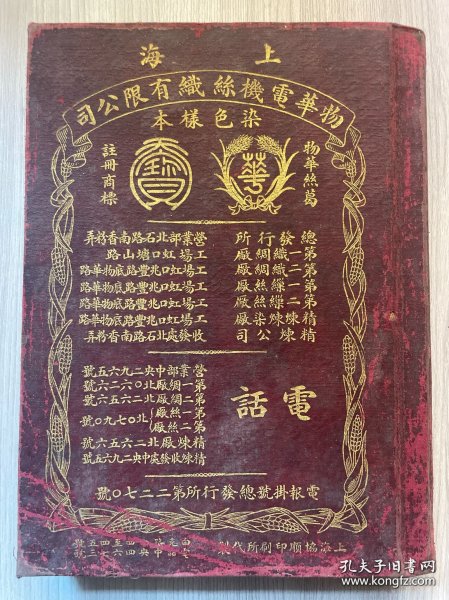 上海
物華電機絲織有限公司
染色樣本
物華絲葛
華
註冊商標
總發行所 營業部北石路南香粉弄
第一織綢廠 工場虹口塘山路
第二織綢廠 工場虹口兆豐路底物華路
第一繅絲廠 工場虹口兆豐路底物華路
第二繅絲廠 工場虹口兆豐路底物華路
精煉染廠 工場虹口兆豐路底物華路
精煉公司 收發處北石路南香粉弄
電話
營業部中央二九六五號
第一綢廠北〇六二六號
第二綢廠北二六五六號
第一絲廠
第二絲廠
北〇七九〇號
精煉廠北二六五六號
精煉收發處中央二九六五號
電報掛號總發行所第二二七〇號
上海協順印刷所代製
孔夫子旧书网
book.kongfz.com